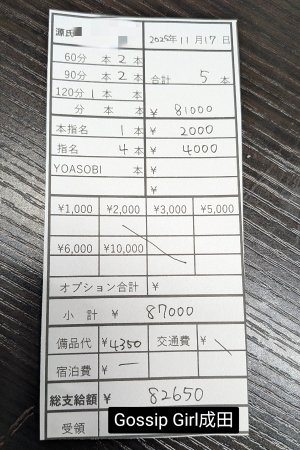 源氏 2025年11月17日
60分 本 2 本
90分 本 2 本 合計 5 本
120分 1 本
分 本 ¥ 81000
本指名 1 本 ¥ 2000
指名 4 本 ¥ 4000
YOASOBI 本 ¥
¥
¥1,000 ¥2,000 ¥3,000 ¥5,000
¥6,000 ¥10,000
オプション合計 ¥
小 計 ¥ 87000
備品代 ¥4350 交通費 ¥
宿泊費 ¥ ー
総支給額 ¥ 82650
受領
Gossip Girl成田